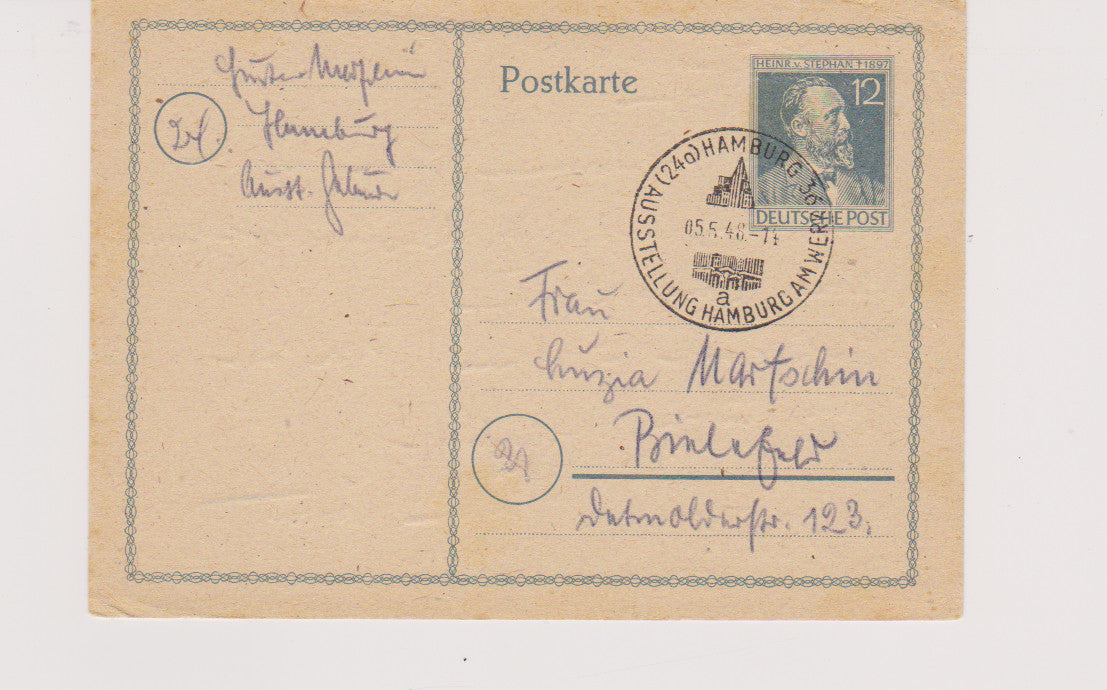 Hamburg
24.
Postkarte
HEINR. v. STEPHAN † 1897
12
DEUTSCHE POST
(24a) HAMBURG 36
AUSSTELLUNG HAMBURG AM WERK
05.5.48.-14
a
Frau
Luzia Martschin
Bielefeld
Detmolderstr. 123.